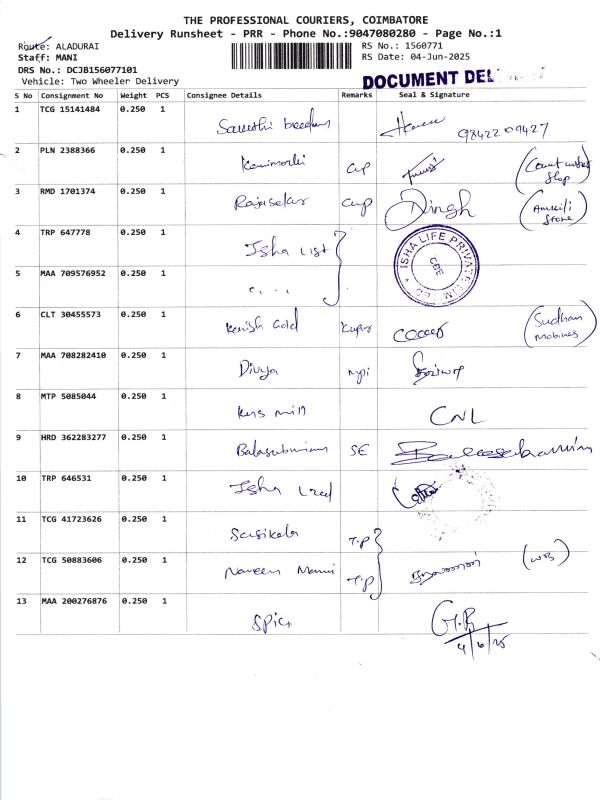 THE PROFESSIONAL COURIERS, COIMBATORE
Delivery Runsheet - PRR - Phone No.:9047080280 - Page No.:1
Route: ALADURAI
RS No.: 1560771
Staff: MANI
RS Date: 04-Jun-2025
DRS No.: DCJB156077101
Vehicle: Two Wheeler Delivery
DOCUMENT DEL
S No Consignment No Weight PCS Consignee Details Remarks Seal & Signature
1 TCG 15141484 0.250 1
9842209427
2 PLN 2388366 0.250 1 Kanimozhi cup
Shop
3 RMD 1701374 0.250 1 Rajasekar cup Singh
Store
4 TRP 647778 0.250 1 Isha
ISHA LIFE PRIVATE LIMITED
CBE
5 MAA 709576952 0.250 1
6 CLT 30455573 0.250 1 Gold
Sudhan
Mobiles
7 MAA 708282410 0.250 1 Divya
8 MTP 5085044 0.250 1 mill CNL
9 HRD 362283277 0.250 1 SE
10 TRP 646531 0.250 1 Isha
11 TCG 41723626 0.250 1 Sasikala TIP
12 TCG 50883606 0.250 1 Naveen TIP (WB)
13 MAA 200276876 0.250 1 G.R
4/6/25